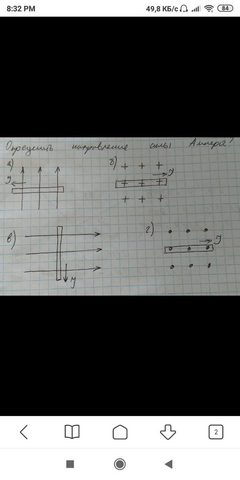 8:32 PM 49,8 КБ/с 84
Определить направление силы Ампера?
а) б)
I I
в) г)
I I
2